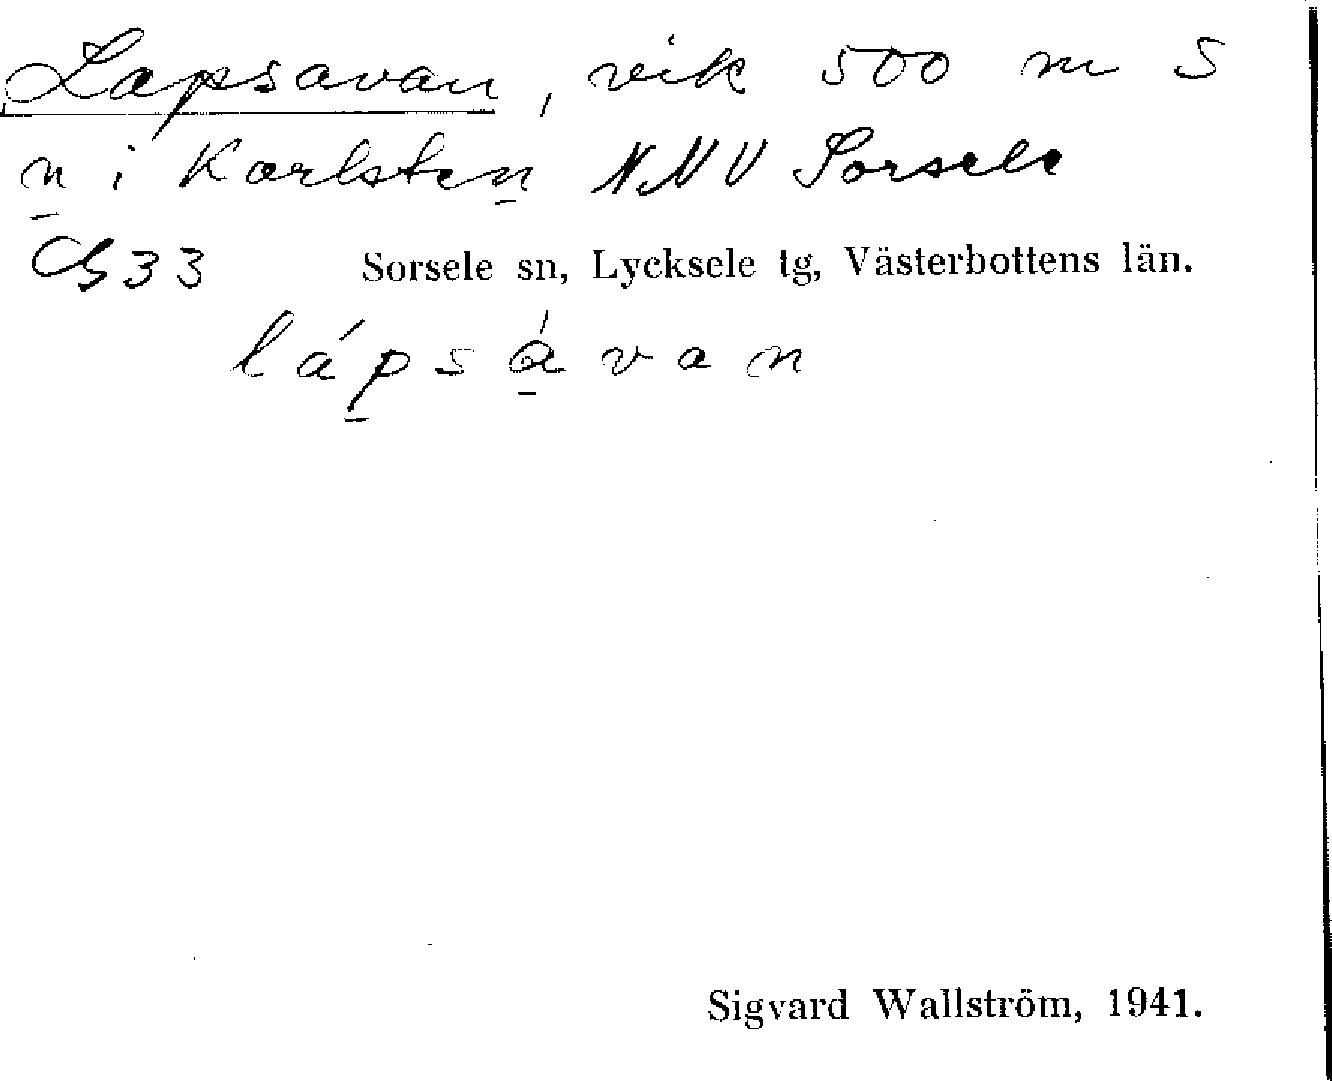 Lapsavan, vik 500 m S
n i Karlsten NNV Sorsele
G33 Sorsele sn, Lycksele tg, Västerbottens län.
lápsávan
Sigvard Wallström, 1941.